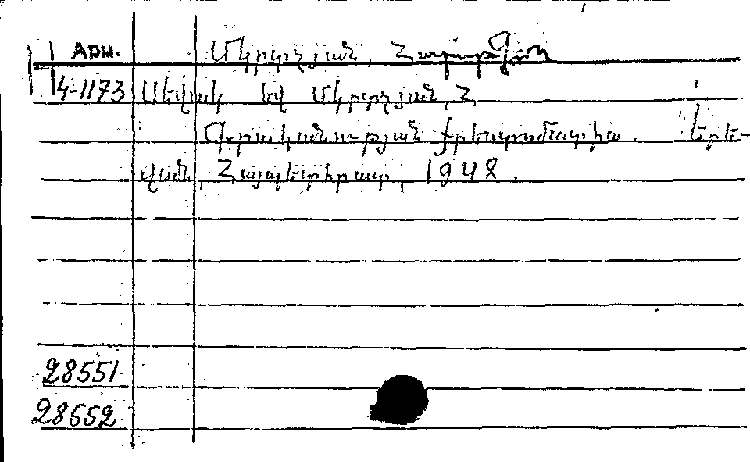 Арм. Մկրտչյան, Հարություն
4-1173 Սևակ եվ Մկրտչյան, Հ.
Գրականության քրեստոմատիա. Երե-
վան, Հայպետհրատ, 1948.
28551
28552